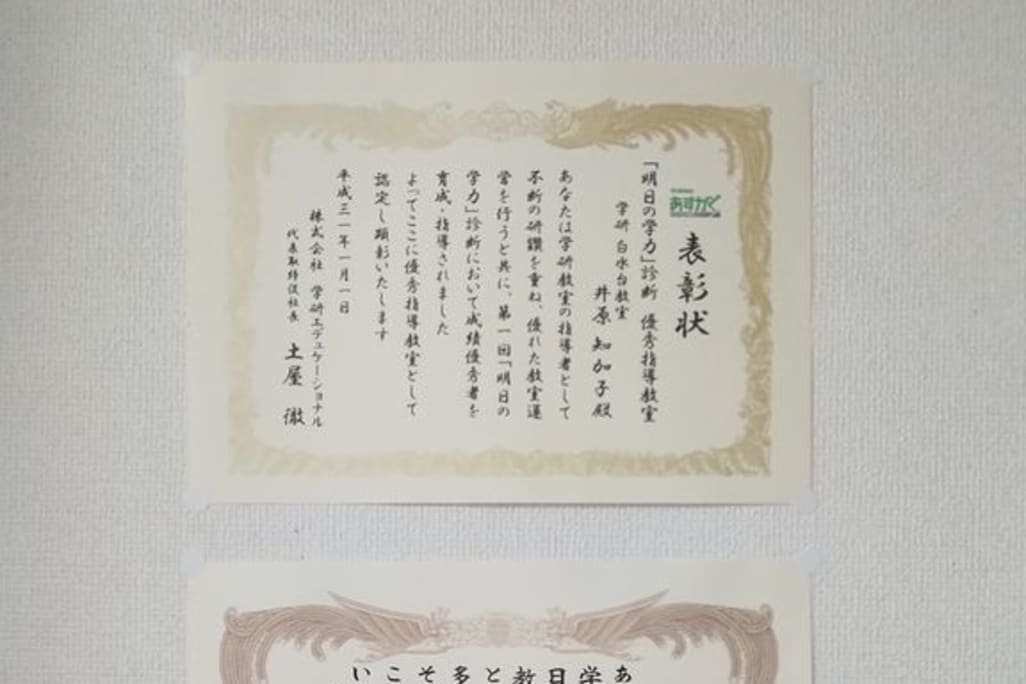 あすがく
表彰状
「明日の学力」診断 優秀指導教室
学研 白水台教室
井原 知加子 殿
あなたは学研教室の指導者として
不断の研鑽を重ね、優れた教室運
営を行うと共に、第一回「明日の
学力」診断において成績優秀者を
育成・指導されました
よってここに優秀指導教室として
認定し顕彰いたします
平成三一年一月一日
株式会社 学研エデュケーショナル
代表取締役社長 土屋 徹
あ
学
日
教
と
多
そ
こ
い